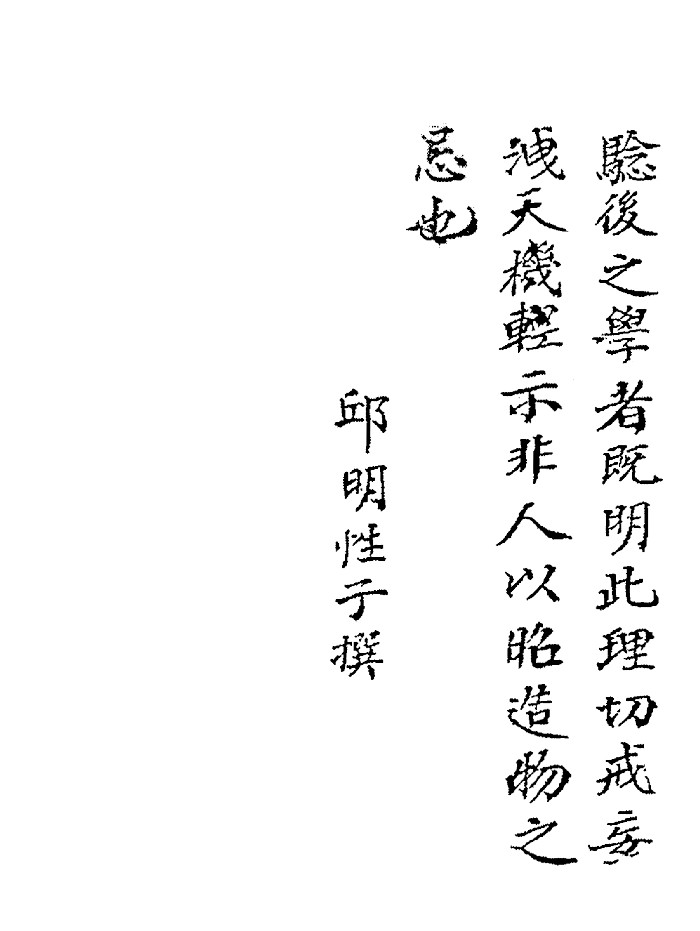 騐後之學者既明此理切戒妄
洩天機輕示非人以昭造物之
忌也
邱明性子撰